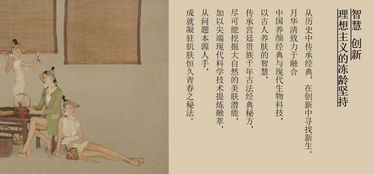 智慧 创新
理想主义的冻龄坚持
从历史中传承经典，在创新中寻找新生。
月华清致力于融合
中国养颜经典与现代生物科技，
以古人养肤的智慧，
传承宫廷贵族千年古法经典秘方，
尽可能挖掘大自然的美肤潜能，
加以尖端现代科学技术提炼融萃，
从问题本源入手，
成就凝驻肌肤恒久青春之秘法。